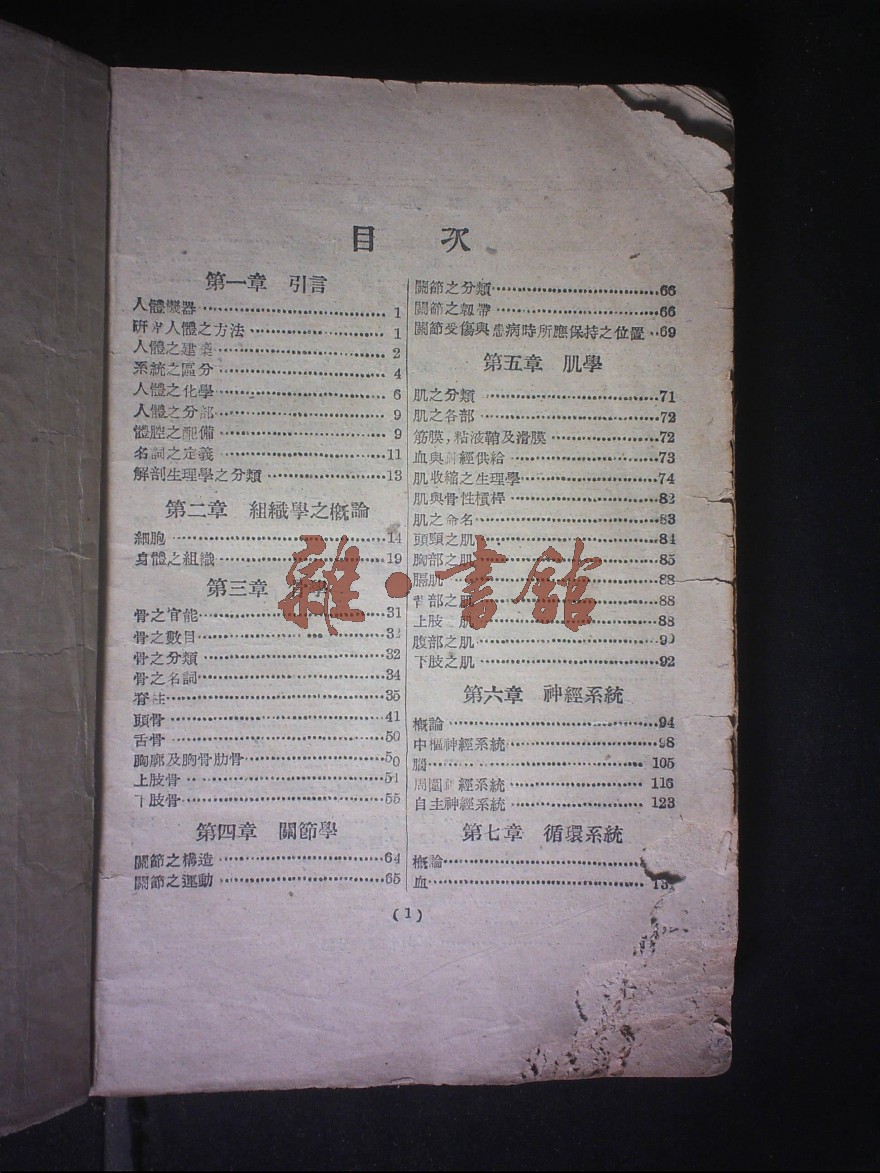 目 次
第一章 引言
人體機器 1
研究人體之方法 1
人體之建築 2
系統之區分 4
人體之化學 6
人體之分部 9
體腔之配備 9
名詞之定義 11
解剖生理學之分類 13
第二章 組織學之概論
細胞 14
身體之組織 19
第三章 骨學
骨之官能 31
骨之數目
骨之分類 32
骨之名詞 34
脊柱 35
頭骨 41
舌骨 50
胸廓及胸骨肋骨 50
上肢骨 51
下肢骨 55
第四章 關節學
關節之構造 64
關節之運動 65
關節之分類 66
關節之韌帶 66
關節受傷與患病時所應保持之位置 69
第五章 肌學
肌之分類 71
肌之各部 72
筋膜,粘液鞘及滑膜 72
血與神經供給 73
肌收縮之生理學 74
肌與骨性槓桿 82
肌之命名 83
頭頸之肌 84
胸部之肌 85
膈肌 88
背部之肌 88
上肢 肌 88
腹部之肌
下肢之肌 92
第六章 神經系統
概論 94
中樞神經系統 98
腦 105
周圍神經系統 116
自主神經系統 123
第七章 循環系統
概論
血
(1)
雜·書館